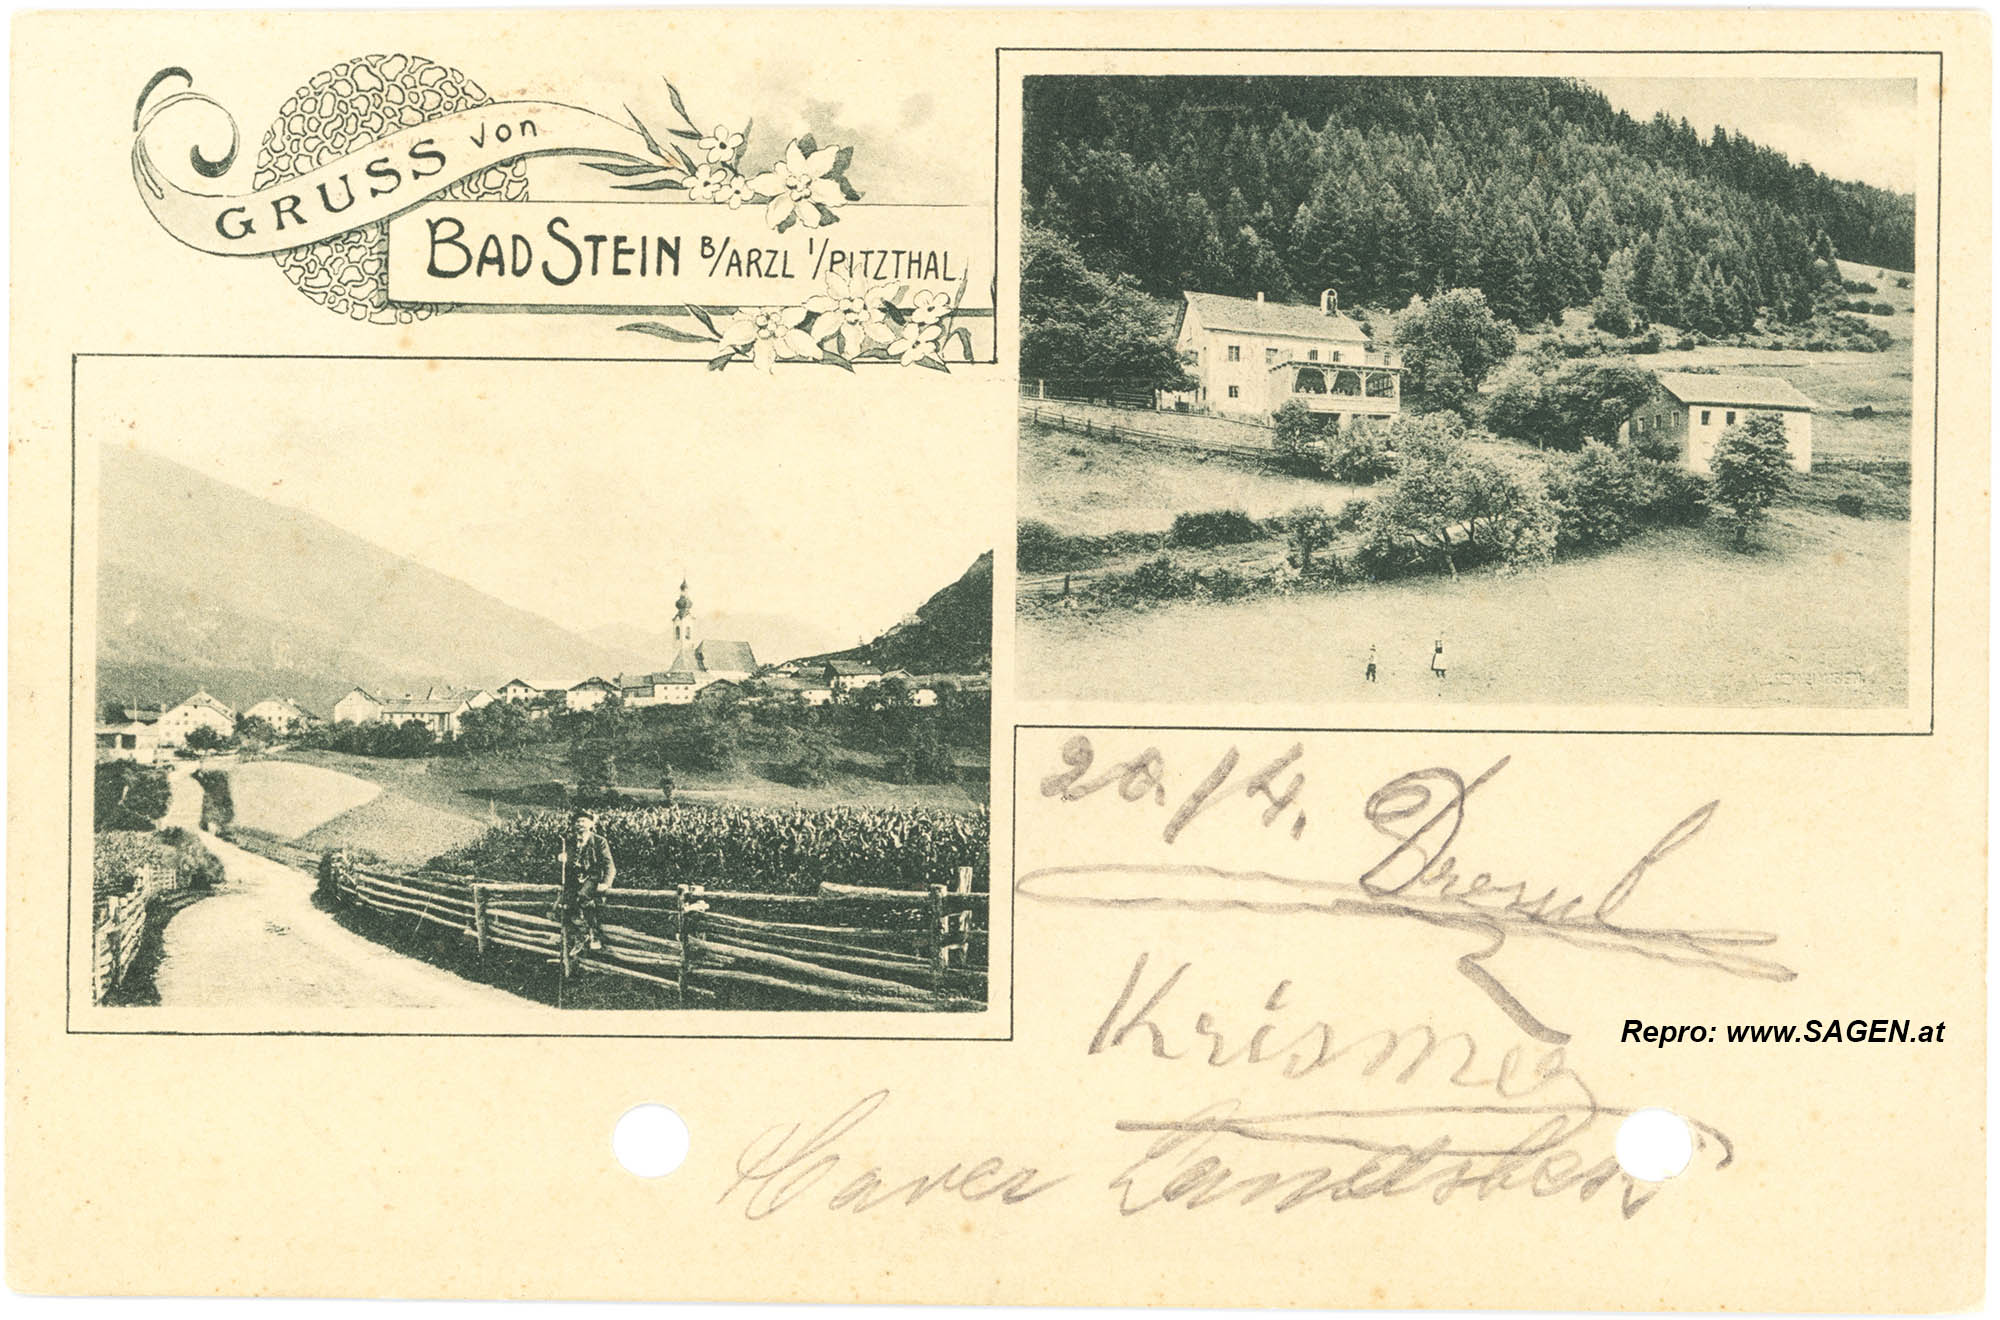 GRUSS von
BAD STEIN B/ARZL I/PITZTHAL
20./4.
Krismer
Repro: www.SAGEN.at
Xaver